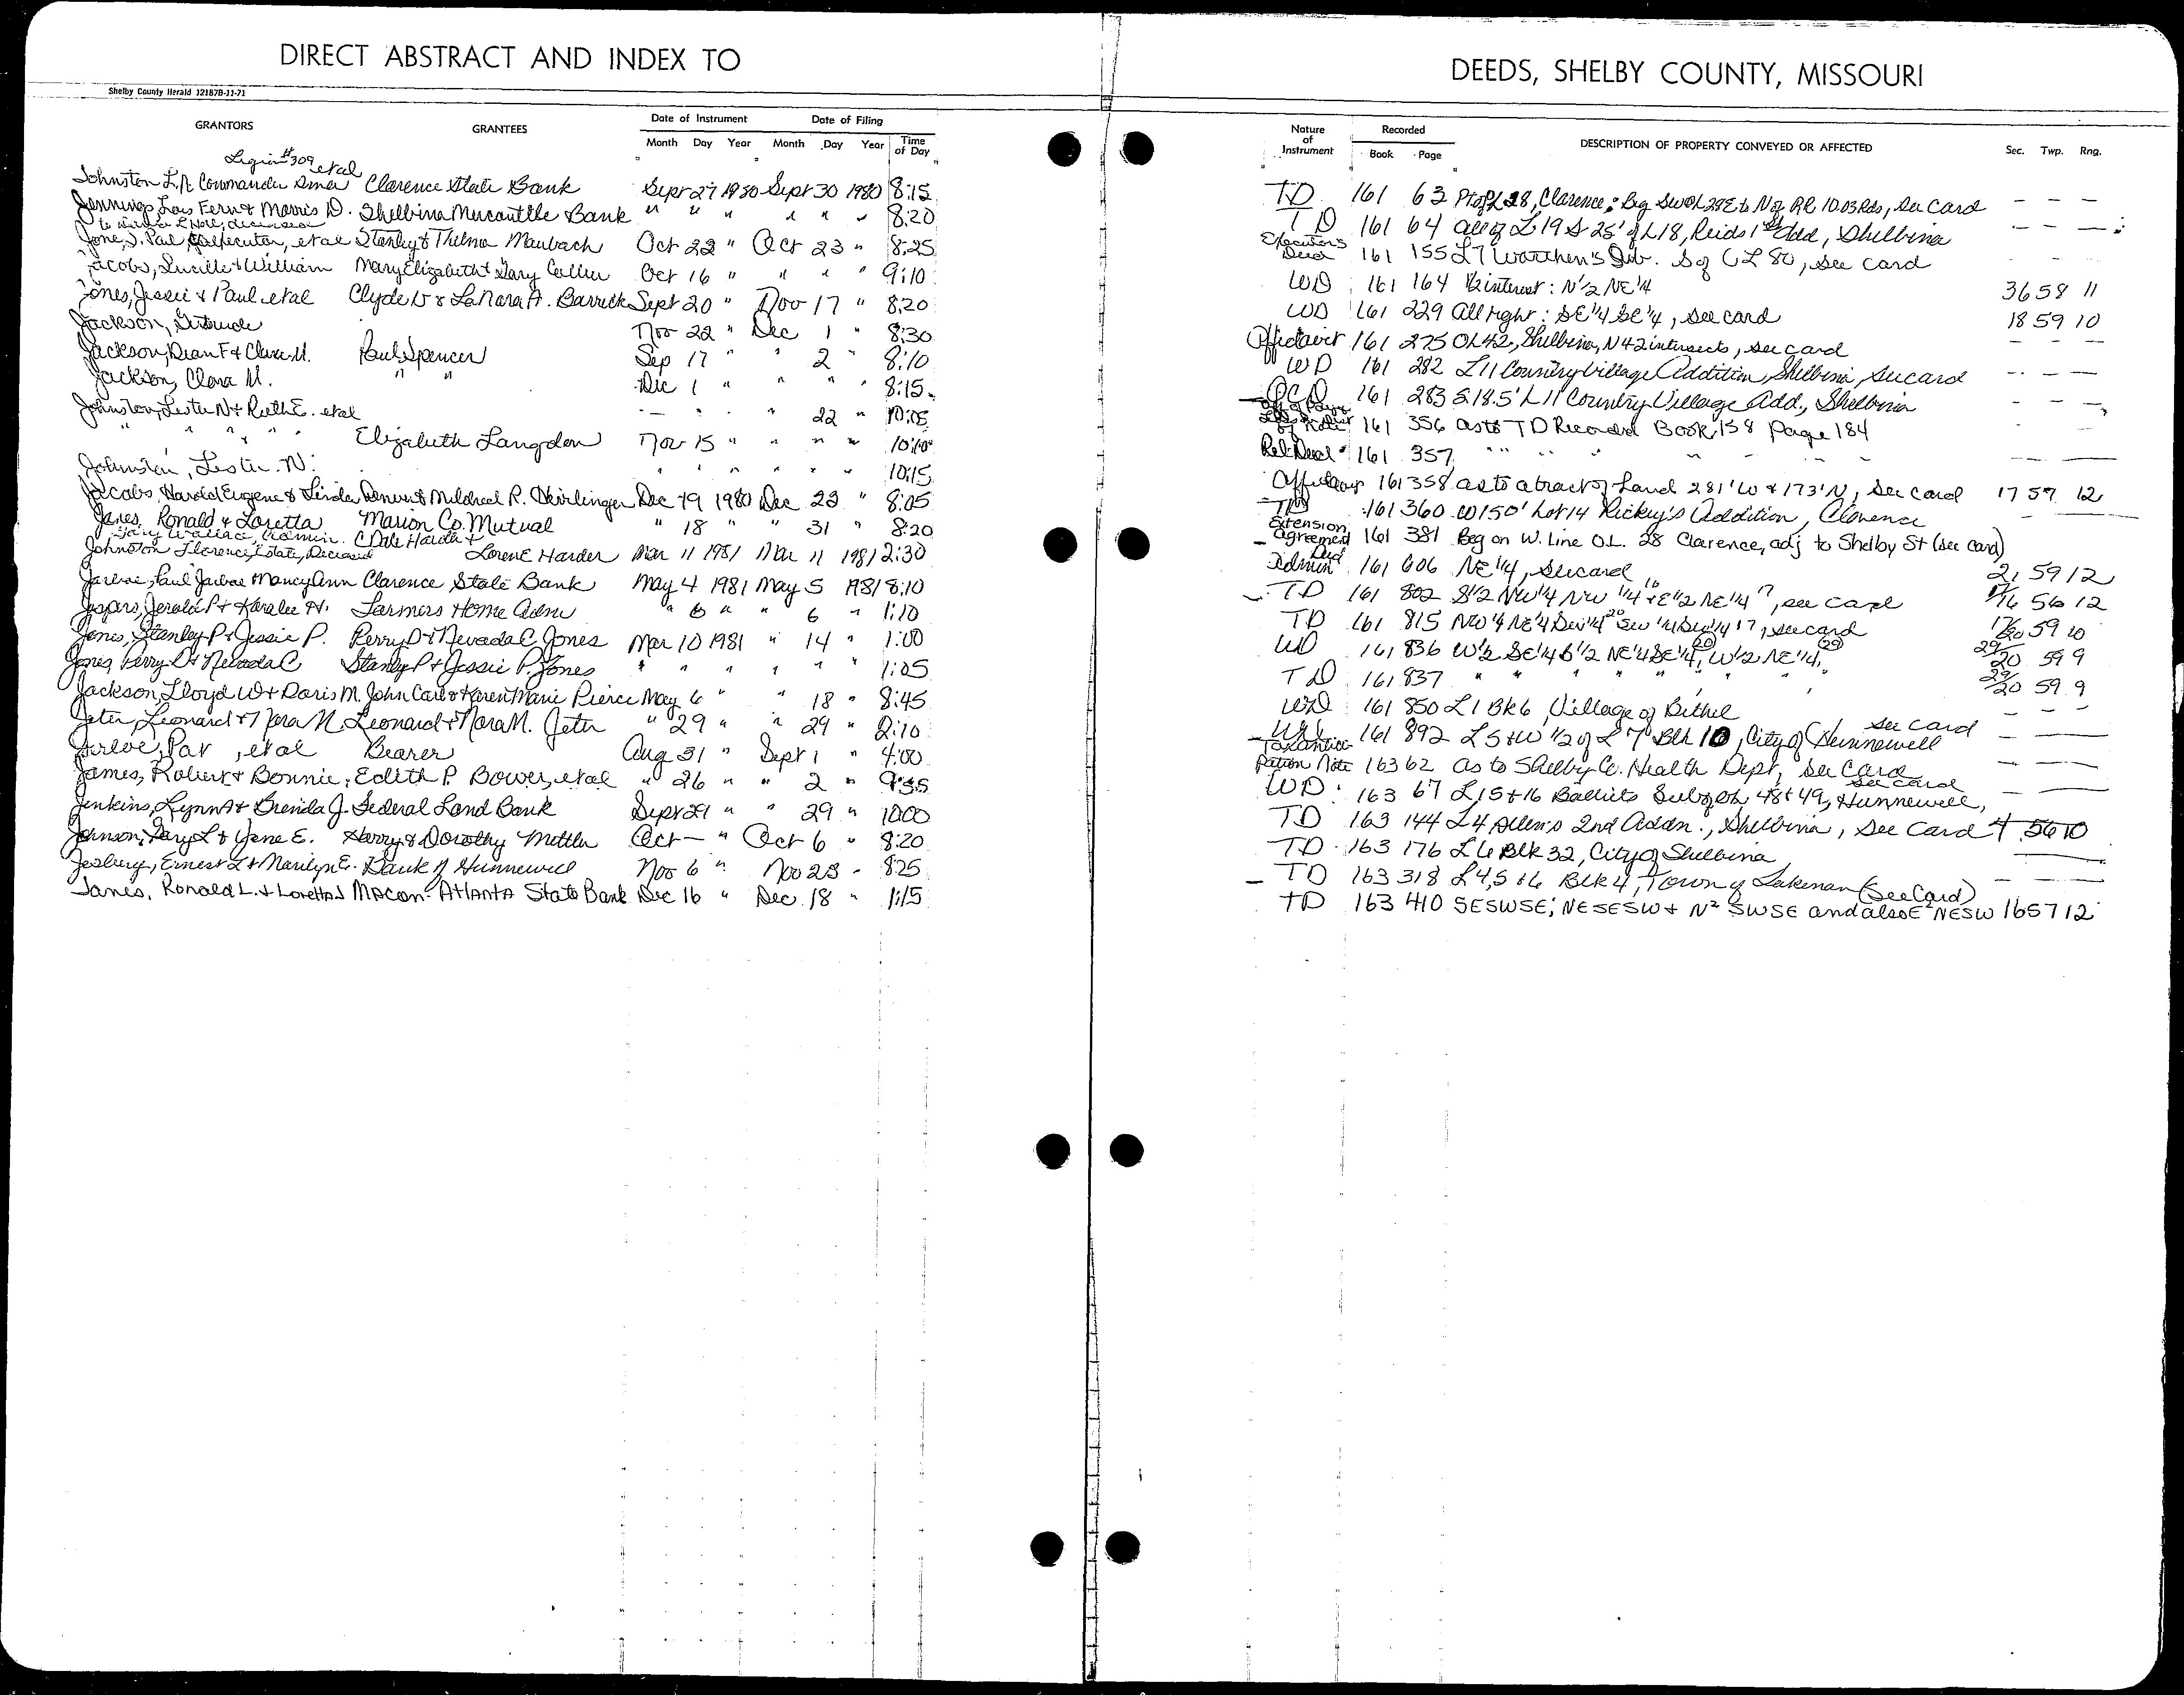 DIRECT ABSTRACT AND INDEX TO
Shelby County Herald 12187B-11-71
GRANTORS GRANTEES Date of Instrument Date of Filing
Month Day Year Month Day Year Time of Day
Legion #309 et al
Johnston L.R. Commander Amer Clarence State Bank Sept 27 1980 Sept 30 1980 8:15
Jennings, Lois Fern & Morris D. Shelbina Mercantile Bank " " " " " " 8:20
Jones, J. Paul Executor, et al Stanley & Thelma Maubach Oct 22 " Oct 23 " 8:25
Jacobs, Lucille & William Mary Elizabeth & Gary Cullen Oct 16 " " " " 9:10
Jones, Jessie & Paul et al Clyde W & LaNora A. Barrett Sept 20 " Nov 17 " 8:20
Jackson, Gertrude Nov 22 " Dec 1 " 8:30
Jackson, Dean F & Clara M. Paul Spencer Sep 17 " " 2 " 8:10
Jackson, Clara M. " " Dec 1 " " " " 8:15
Johnston, Lester N & Ruth E. et al — - " 22 " 10:05
" " " " Elizabeth Langdon Nov 15 " " " " 10:10
Johnston, Lester N. " " " " " 10:15
Jacobs, Harold Eugene & Linda Mildred R. Dec 19 1980 Dec 23 " 8:05
Janes, Ronald & Loretta Marion Co. Mutual " 18 " " 31 " 8:20
Gary Wallace, Admin. C Dale Harder &
Johnston Florence, Estate, Deceased Lorene Harder Mar 11 1981 Mar 11 1981 2:30
Jarboe, Paul Jarboe & Nancy Ann Clarence State Bank May 4 1981 May 5 1981 8:10
Jaspers, Jerald P & Karalee H. Farmers Home Adm " 6 " " 6 " 1:10
Jones, Stanley P & Jessie P. Perry D & Nevada C Jones Mar 10 1981 " 14 " 1:00
Jones, Perry D & Nevada C Stanley P & Jessie P. Jones " " " " " " 1:05
Jackson, Lloyd W & Doris M. John Carl & Karen Marie Pierce May 6 " " 18 " 8:45
Jeter, Leonard & Nora M. Leonard & Nora M. Jeter " 29 " " 29 " 2:10
Jarboe, Pat, et al Bearer Aug 31 " Sept 1 " 4:00
James, Robert & Bonnie, Edith P. Bower, et al " 26 " " 2 " 9:35
Jenkins, Lynn A & Brenda J. Federal Land Bank Sept 29 " " 29 " 10:00
Johnson, Gary L & Jane E. Harry & Dorothy Mettler Oct — " Oct 6 " 8:20
Jesberg, Ernest L & Marilyn E. Bank of Hunnewell Nov 6 " Nov 23 " 8:25
Janes, Ronald L. & Loretta J Macon-Atlanta State Bank Dec 16 " Dec 18 " 1:15
DEEDS, SHELBY COUNTY, MISSOURI
Nature of Instrument Recorded Book Page DESCRIPTION OF PROPERTY CONVEYED OR AFFECTED Sec. Twp. Rng.
TD 161 63 Pt of OL 28, Clarence: Beg SW OL 28 E to N of RR 10.03 Rds, see card - - -
TD 161 64 all of L 19 & S 25' of L18, Reids 1st Add, Shelbina - - -
Executor's Deed 161 155 L7 Worthen's Sub. S of OL 80, see card - - -
WD 161 164 1/2 interest: N 1/2 NE 1/4 36 58 11
WD 161 229 All right: SE 1/4 SE 1/4, see card 18 59 10
Affidavit 161 275 OL 42, Shelbina, N 42 intersects, see card - - -
WD 161 282 L11 Country Village Addition, Shelbina, see card - - -
QCD 161 283 S 18.5' L 11 Country Village Add., Shelbina - - -
161 356 as to TD Recorded Book 158 page 184
Rel Deed 161 357 " " " " " "
Affidavit 161 358 as to a tract of land 281' W & 173' N, see card 17 57 12
TD 161 360 W 150' Lot 14 Rickey's Addition, Clarence
Extension Agreement 161 381 Beg on W. Line O.L. 28 Clarence, adj to Shelby St (see card)
Admin Deed 161 606 NE 1/4, see card 21 59 12
TD 161 802 S 1/2 NW 1/4 NW 1/4 16 & E 1/2 NE 1/4 17, see card 17/16 56 12
TD 161 815 NW 1/4 NE 1/4 SW 1/4 20 SW 1/4 SW 1/4 17, see card 17/20 59 10
WD 161 836 W 1/2 SE 1/4 S 1/2 NE 1/4 SE 1/4 (20), W 1/2 NE 1/4 (29) 29/20 59 9
TD 161 837 " " " " " " " 29/20 59 9
WD 161 850 L 1 Bk 6, Village of Bethel - - -
WD 161 892 L 5 & W 1/2 of L 7 Blk 10, City of Hunnewell see card
Taxanticipation Note 163 62 as to Shelby Co. Health Dept, see card
WD 163 67 L 15 & 16 Balliets Sub of OL 48 & 49, Hunnewell, see card
TD 163 144 L 4 Allen's 2nd Addn., Shelbina, see card 4 56 10
TD 163 176 L 6 Blk 32, City of Shelbina
TD 163 318 L 4,5 & 6 Blk 4, Town of Lakenan (See Card)
TD 163 410 SESWSE; NESESW & N² SWSE and also E² NESW 16 57 12